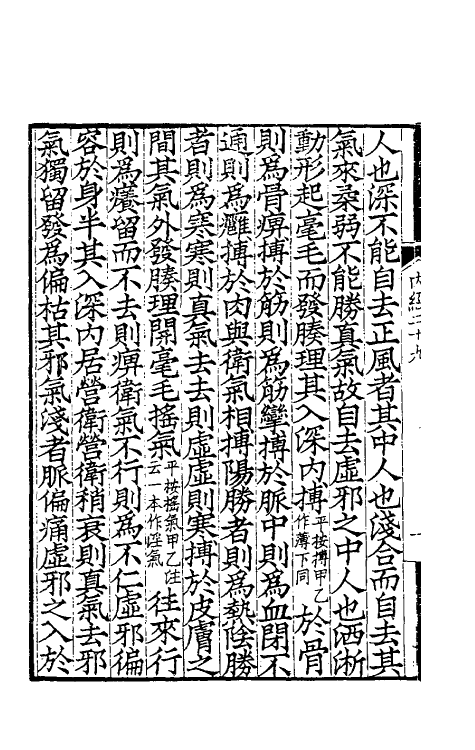 人也深不能自去正風者其中人也淺合而自去其
氣來柔弱不能勝真氣故自去虛邪之中人也洒淅
動形起毫毛而發腠理其入深內搏平按搏甲乙作薄下同於骨
則為骨痹搏於筋則為筋攣搏於脈中則為血閉不
通則為癰搏於肉與衛氣相搏陽勝者則為熱陰勝
者則為寒寒則真氣去去則虛虛則寒搏於皮膚之
間其氣外發腠理開毫毛搖氣平按搖氣甲乙注云一本作淫氣往來行
則為癢留而不去則痹衛氣不行則為不仁虛邪偏
容於身半其入深內居營衛營衛稍衰則真氣去邪
氣獨留發為偏枯其邪氣淺者脈偏痛虛邪之入於
內經二十九
一